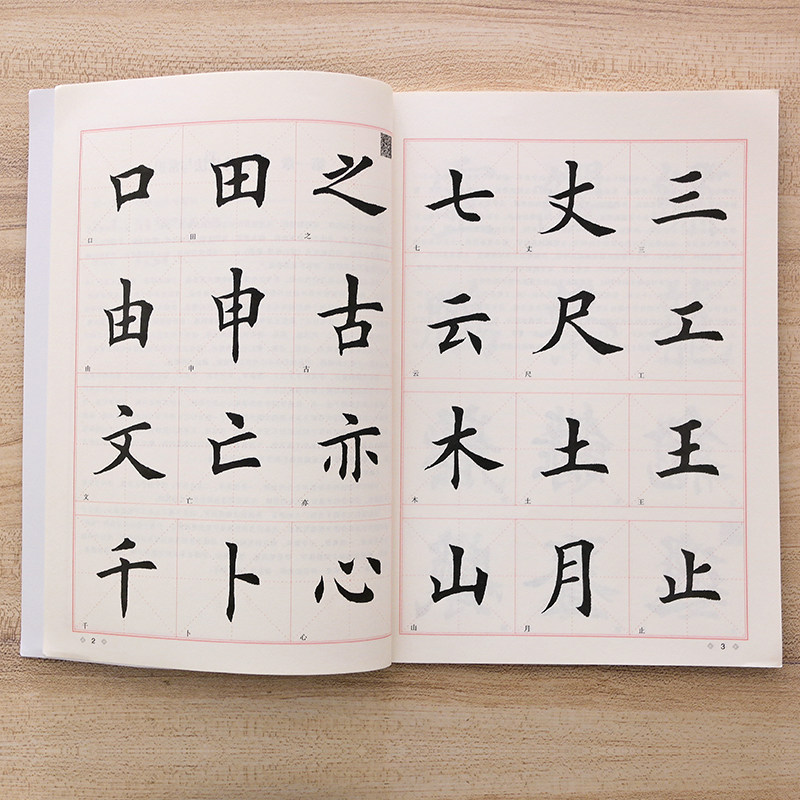 口 田 之
口 田 之
由 申 古
由 申 古
文 亡 亦
文 亡 亦
千 卜 心
千 卜 心
2
七 丈 三
七 丈 三
云 尺 工
云 尺 工
木 土 王
木 土 王
山 月 止
山 月 止
3